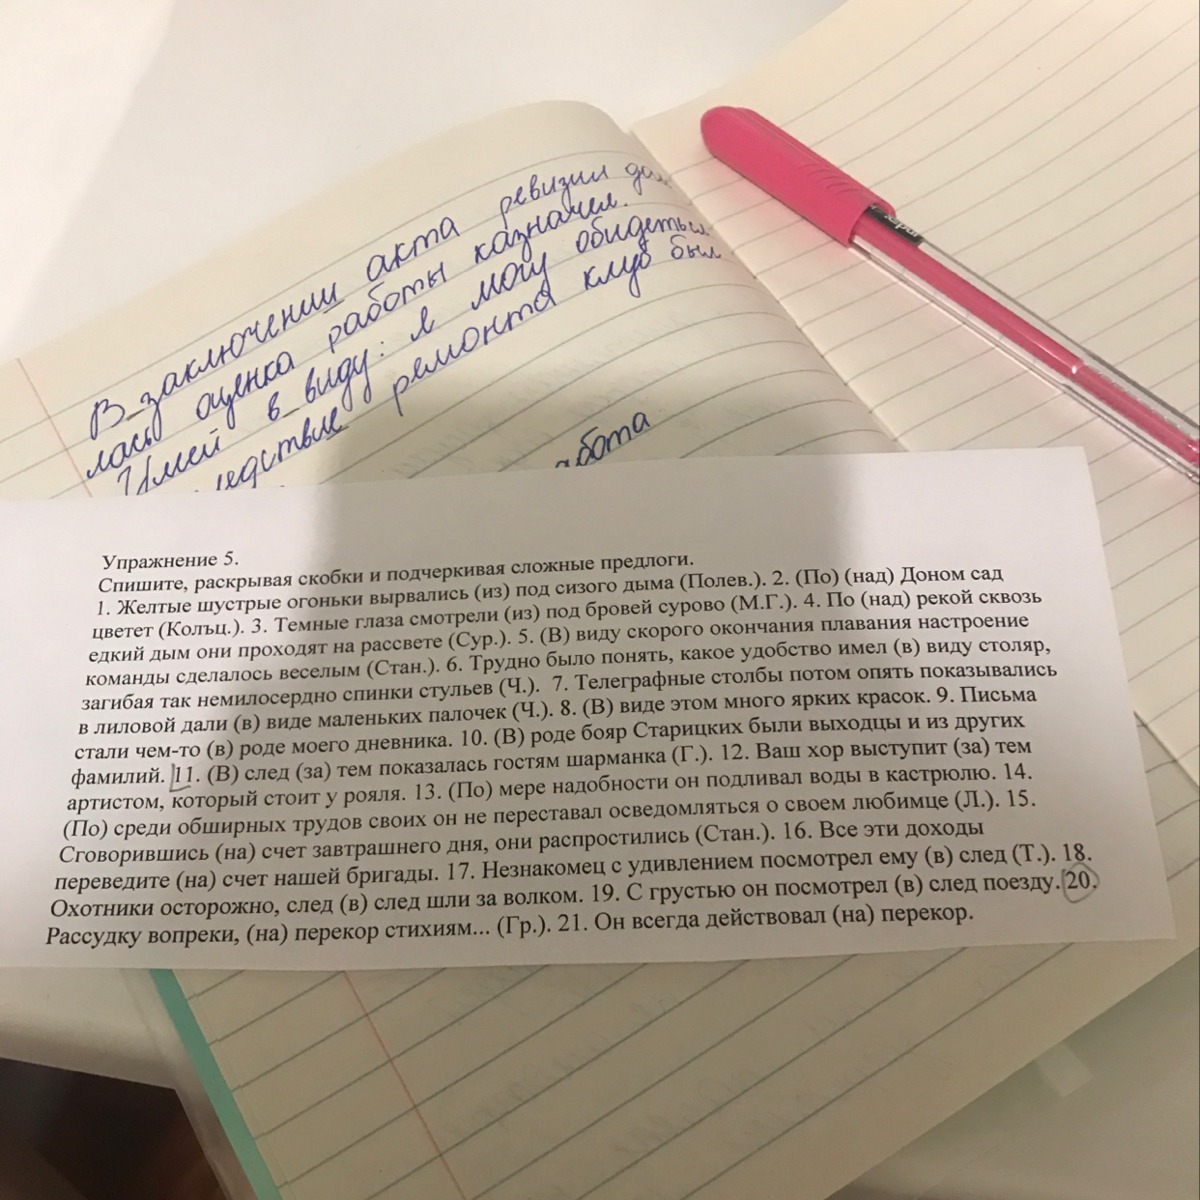 В заключении акта ревизии да
лась оценка работы казначея.
Имей в виду: я могу обидеться.
ледствие ремонта клуб был
абота
index
Упражнение 5.
Спишите, раскрывая скобки и подчеркивая сложные предлоги.
1. Желтые шустрые огоньки вырвались (из) под сизого дыма (Полев.). 2. (По) (над) Доном сад
цветет (Кольц.). 3. Темные глаза смотрели (из) под бровей сурово (М.Г.). 4. По (над) рекой сквозь
едкий дым они проходят на рассвете (Сур.). 5. (В) виду скорого окончания плавания настроение
команды сделалось веселым (Стан.). 6. Трудно было понять, какое удобство имел (в) виду столяр,
загибая так немилосердно спинки стульев (Ч.). 7. Телеграфные столбы потом опять показывались
в лиловой дали (в) виде маленьких палочек (Ч.). 8. (В) виде этом много ярких красок. 9. Письма
стали чем-то (в) роде моего дневника. 10. (В) роде бояр Старицких были выходцы и из других
фамилий. 11. (В) след (за) тем показалась гостям шарманка (Г.). 12. Ваш хор выступит (за) тем
артистом, который стоит у рояля. 13. (По) мере надобности он подливал воды в кастрюлю. 14.
(По) среди обширных трудов своих он не переставал осведомляться о своем любимце (Л.). 15.
Сговорившись (на) счет завтрашнего дня, они распростились (Стан.). 16. Все эти доходы
переведите (на) счет нашей бригады. 17. Незнакомец с удивлением посмотрел ему (в) след (Т.). 18.
Охотники осторожно, след (в) след шли за волком. 19. С грустью он посмотрел (в) след поезду. 20.
Рассудку вопреки, (на) перекор стихиям... (Гр.). 21. Он всегда действовал (на) перекор.